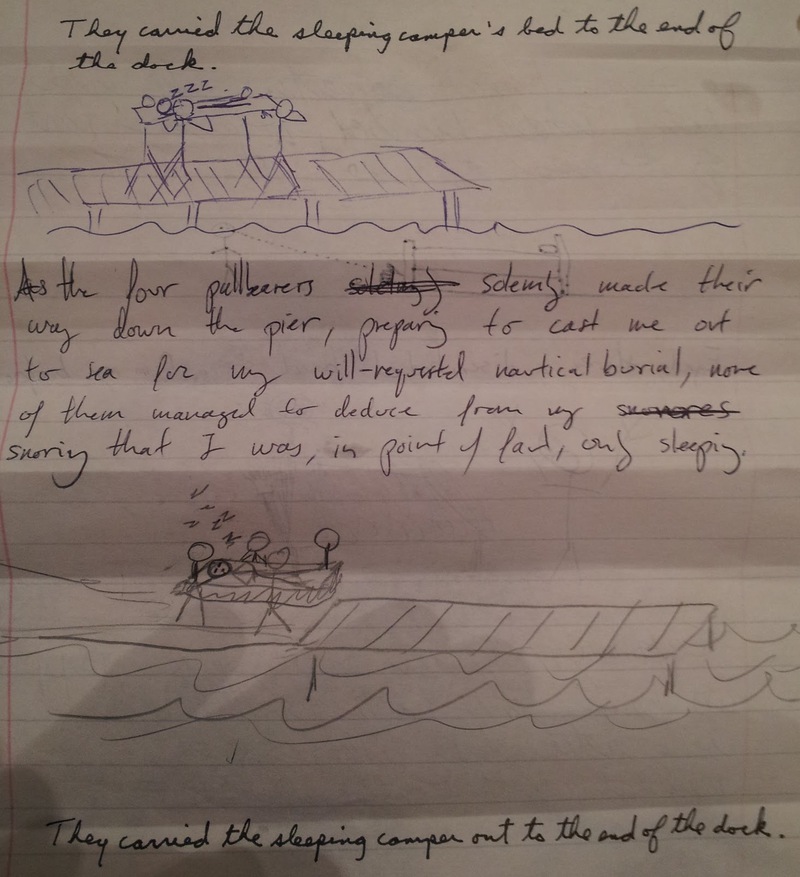 They carried the sleeping camper's bed to the end of
the dock.
z z z
As the four pallbearers solemnly made their
way down the pier, preparing to cast me out
to sea for my will-requested nautical burial, none
of them managed to deduce from my snores
snoring that I was, in point of fact, only sleeping.
z z z z z
They carried the sleeping camper out to the end of the dock.